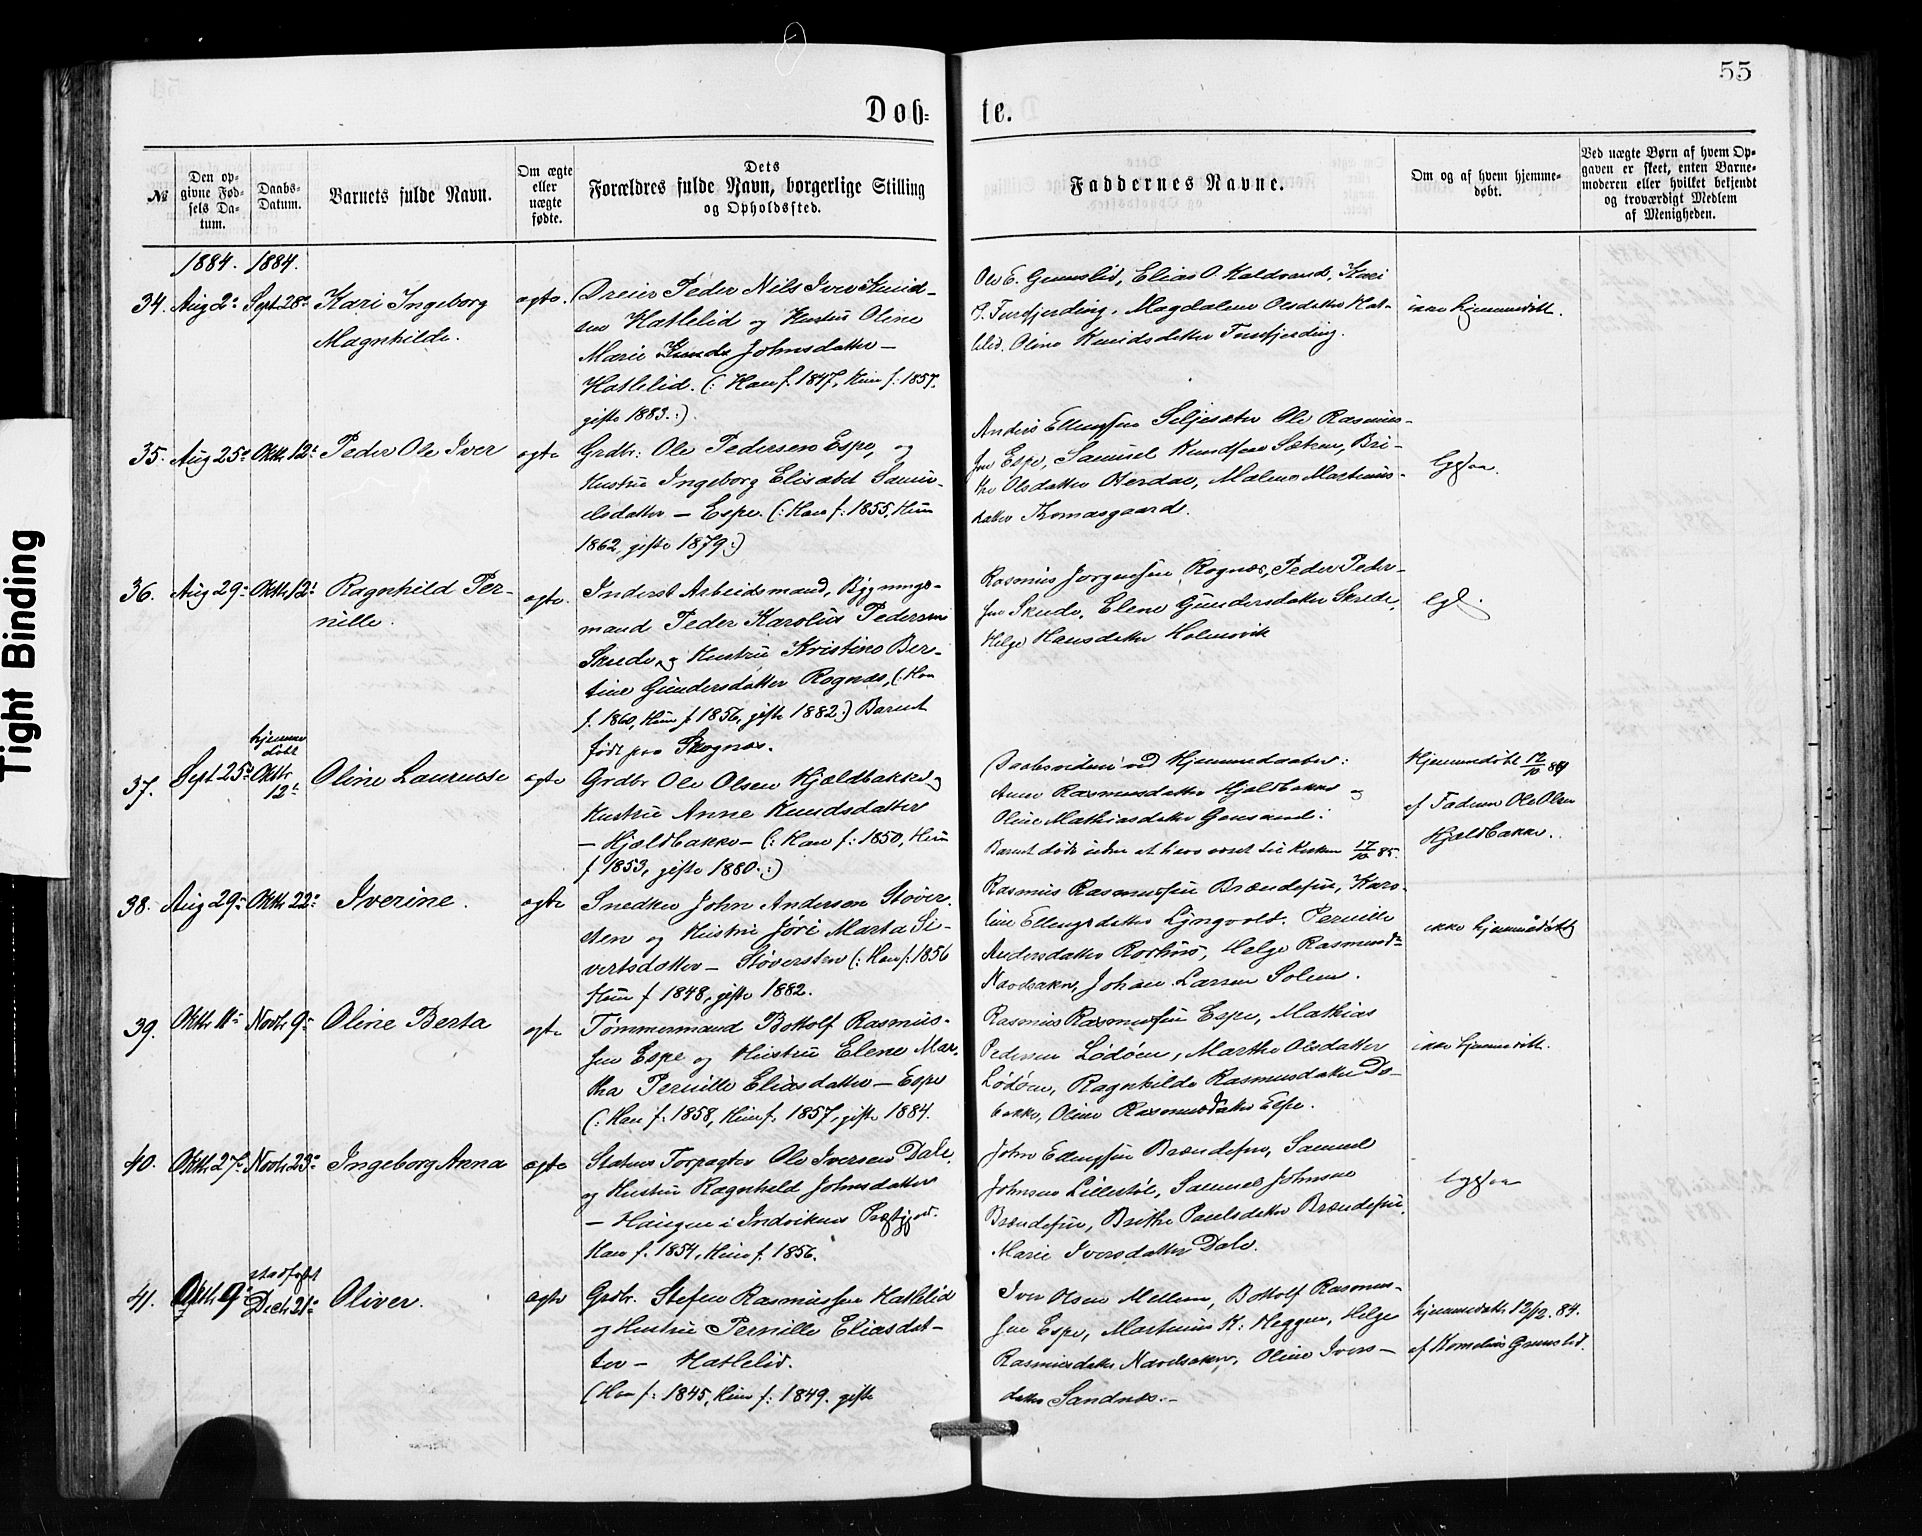 55
Døb-
te.
№
Den op-
givne Fød-
sels Da-
tum.
Daabs-
Datum.
Barnets fulde Navn.
Om ægte
eller
uægte
fødte.
Dets
Forældres fulde Navn, borgerlige Stilling
og Opholdssted.
Faddernes Navne.
Om og af hvem hjemme-
døbt.
Ved uægte Børn af hvem Op-
gaven er skeet, enten Barne-
moderen eller hvilket bekjendt
og troværdigt Medlem
af Menigheden.
1884. 1884.
34. Aug 2 Sept 28 Kari Ingeborg
Magnhilde.
ægte.
Dreier Peder Nils Iver Knud-
sen Hatlelid og Hustru Oline
Marie Johnsdatter –
Hatlelid. (: Han f. 1847, Hun f: 1857.
gifte 1883.:)
Ole E. Grunslid, Elias O. Kaldvand, Kari
Tusfjerding, Magdalene Olsdatter Hat-
lelid. Oline Knudsdatter Tusfjerding.
ikke hjemmedøbt.
35. Aug 25 Oktbr 12 Peder Ole Iver
ægte
Grdbr: Ole Pedersen Espe, og
Hustru Ingeborg Elisabet Samu-
elsdatter – Espe. (: Han f: 1855, Hun
1862, gifte 1879:)
Anders Ellingsen Seljesæter Ole Rasmus-
sen Espe, Samuel Knudsen Sætren, Bri-
the Olsdatter Oterdal, Malene Martinus-
datter Thomasgaard.
36. Aug 29 Oktbr 12 Ragnhild Per-
nille.
ægte.
Inderst Arbeidsmand, Bygnings-
mand Peder Karolus Pedersen
Skrede og Hustru Kristine Ber-
tine Gundersdatter Rognæs, (: Han
f. 1860, Hun f 1856, gifte 1882:) Barnet
født paa Rognæs.
Rasmus Jørgensen Rognæs, Peder Peder-
sen Skrede, Elene Gundersdatter Skrede,
Helge Hansdatter Holmvik
37. Sept 25
hjemme
døbt
Oktbr
12
Oline Laurensse
ægte
Grdbr Ole Olsen Hjældbakke og
Hustru Anne Knudsdatter
– Hjældbakke – (: Han f: 1850, Hun
f 1853, gifte 1880.:)
Daabsvidner ved Hjemmedaaben:
Anne Rasmusdatter Hjældbakke og
Oline Mathiasdatter
Barnet døde uden at have været til Kirken 17/10 85.
Hjemmedøbt 12/10 84
af Faderen Ole Olsen
Hjældbakke.
38. Aug 29 Oktbr 22 Iverine.
ægte
Snedker John Andersen Støver-
sten og Hustru Jøri Marta Si-
vertsdatter – Støversten (: Han f: 1856
Hun f 1848, gifte 1882.
Rasmus Rasmussen Brændefur, Karo-
line Ellingsdatter Lyngvold. Pernille
Andersdatter Rorhus, Helge Rasmusd
Navelsaker, Johan Larsen Solem.
ikke hjemmedøbt
39. Oktbr 11 Novbr 9 Oline Berta
ægte
Tømmermand Bottolf Rasmus-
sen Espe og Hustru Elene Mar-
tha Pernille Eliasdatter – Espe
(: Han f: 1858, Hun f. 1857, gifte 1884.
Rasmus Rasmussen Espe, Mathias
Pedersen Lødøen, Marthe Olsdatter
Lødøen, Ragnhilde Rasmusdatter De-
bakke, Oline Rasmusdatter Espe.
ikke hjemmedøbt.
40. Oktbr 27 Novbr 23 Ingeborg Anna
ægte
Statens Forpagter Ole Iversen Dale,
og Hustru Ragnhild Johnsdatter
– Haugen i Indvikens Præstgjæld.
Han f. 1854, Hun f. 1856.
John Ellingsen Brændefur, Samuel
Johnsen Lillestøl, Samuel Johnsen
Brændefur, Brithe Paulsdatter Brændefur,
Marie Iversdatter Dale.
41. Oktbr 9
stadfæst
Decbr 21
Oliver.
ægte
Grdbr. Stefen Rasmussen Hatlelid
og Hustru Pernille Eliasdat-
ter – Hatlelid.
(Han f: 1845, Hun f: 1849. gifte
Iver Olsen Mellem, Bottolf Rasmus-
sen Espe, Martinus K: Heggen, Helge
Rasmusdatter Navelsaker, Oline Ivers-
datter Sandnes. –
hjemmedøbt 12/10. 84.
af Kornelius Grunslid.
Tight Binding